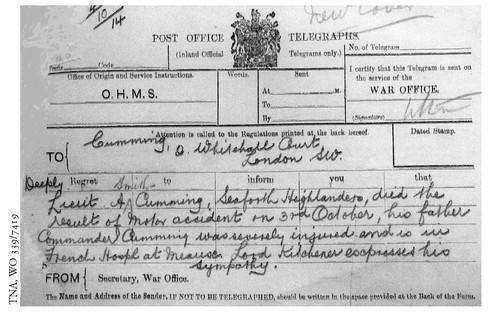 4/10/14
New Cover
POST OFFICE TELEGRAPHS.
(Inland Official Telegrams only.)
No. of Telegram
Prefix Code
Office of Origin and Service Instructions.
Words.
Sent
I certify that this Telegram is sent on
the service of the
O.H.M.S.
At M.
WAR OFFICE.
To
By
(Signature)
Attention is called to the Regulations printed at the back hereof.
Dated Stamp.
TO { Cumming, 2 Whitehall Court,
London SW.
Deeply Regret to inform you that
Lieut A Smith- Cumming, Seaforth Highlanders, died the
result of Motor accident on 3rd October, his father
Commander Cumming was severely injured and is in
French Hospl at Meaux Lord Kitchener expresses his
sympathy.
FROM { Secretary, War Office.
The Name and Address of the Sender, IF NOT TO BE TELEGRAPHED, should be written in the space provided at the Back of the Form.
TNA, WO 339/7419